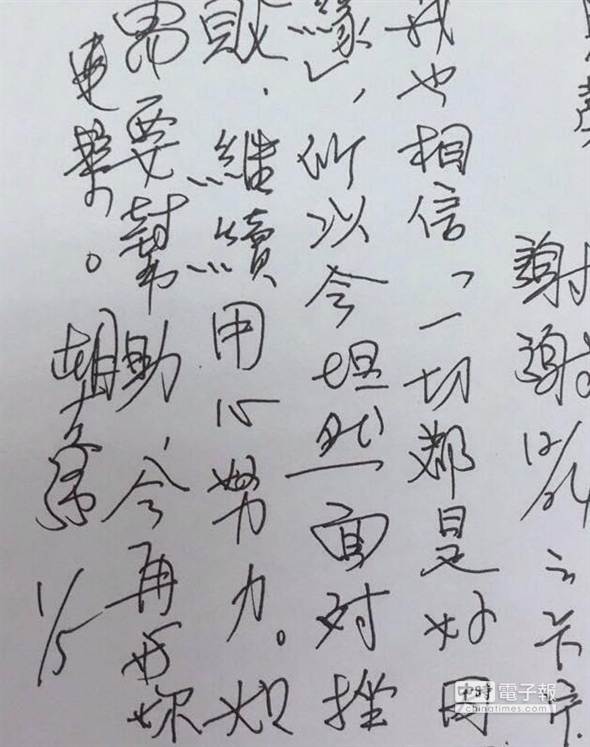 謝謝12/24之
我也相信「一切都是好因
緣」,所以會坦然面對挫
敗、繼續用心努力。如
需要幫助,會再與妳
連繫。胡志強 1/5
中時電子報
chinatimes.com